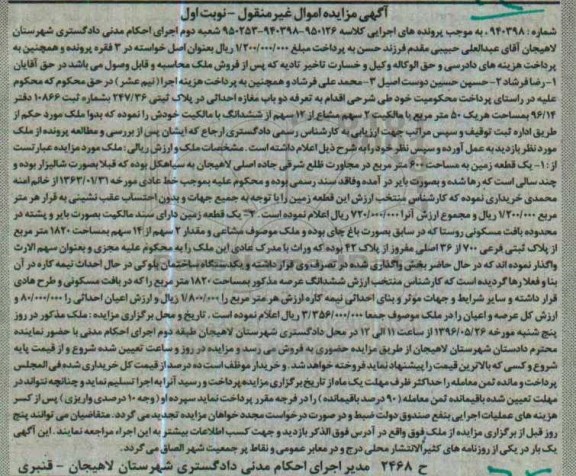 آگهی مزایده اموال غیر منقول - نوبت اول
شماره : ۹۴۰۳۹۸. به موجب پرونده های اجرایی کلاسه ۹۵۰۱۲۶-۹۴۰۳۹۸-۹۵۰۲۵۳ شعبه دوم اجرای احکام مدنی دادگستری شهرستان
لاهیجان آقای عبدالعلی حبیبی مقدم فرزند حسن به پرداخت مبلغ ۱/۲۰۰/۰۰۰/۰۰۰ ریال بعنوان اصل خواسته در ۳ فقره پرونده و همچنین به
پرداخت هزینه های دادرسی و حق الوکاله وکیل و خسارت تاخیر تادیه که پس از فروش ملک محاسبه و قابل وصول می باشد در حق آقایان
۱-رضا فرشاد ۲-حسین حسین دوست اصیل ۳-محمد علی فرشاد و همچنین به پرداخت هزینه اجرا (نیم عشر) در حق محکوم که محکوم
علیه در راستای پرداخت محکومیت خود طی شرحی اقدام به تعرفه دو باب مغازه احداثی در پلاک ثبتی ۲۴۷/۳۶ بشماره ثبت ۱۰۸۶۶ دفتر
۹۶/۱۴ بمساحت هریک ۵۰ متر مربع با مالکیت ۲ سهم مشاع از ۱۲ سهم از ششدانگ با مالکیت خودش را نموده که بدوا ملک مورد حکم از
طریق اداره ثبت توقیف و سپس مراتب جهت ارزیابی به کارشناس رسمی دادگستری ارجاع که ایشان پس از بررسی و مطالعه پرونده از ملک
مورد نظر بازدید به عمل آورده و سپس نظر خود را به شرح ذیل اعلام داشته است . مشخصات ملک و ارزش ریالی : ملک مورد مزایده عبارتست
از : ۱-یک قطعه زمین به مساحت ۶۰۰ متر مربع در مجاورت ظلع شرقی جاده اصلی لاهیجان به سیاهکل بوده که قبلا بصورت شالیزار بوده و
چند سالی است که رها شده و بصورت بایر در آمده وفاقد سند رسمی بوده و محکوم علیه بموجب خط عادی مورخه ۱۳۶۳/۰۱/۳۱ از خانم امنه
محمدی خریداری نموده که کارشناس منتخب ارزش این قطعه زمین را با توجه به جمیع جهات و بدون احتساب عقب نشینی به قرار هر متر
مربع ۱/۲۰۰/۰۰۰ ریال و مجموع ارزش آنرا ۷۲۰/۰۰۰/۰۰۰ ریال اعلام نموده است . ۲-یک قطعه زمین دارای سند مالکیت بصورت بایر و پشته در
محدوده بافت مسکونی روستا که در سابق بصورت باغ چای بوده و ملک موصوف مشاعی و مقدار ۲ سهم از ۱۴ سهم بمساحت ۱۸۲۰ متر مربع
از پلاک ثبتی فرعی ۷۰۰ از ۳۶ اصلی مفروز از پلاک ۴۲ بوده که وراث با مدرک عادی این ملک را به محکوم علیه مجزی و بعنوان سهم الارث
واگذار نموده اند که در حال حاضر بخش واگذاری شده در تصرف وی قرار داشته و یکدستگاه ساختمان بلوکی در حال احداث نیمه کاره در آن
بنا و فعلا رها گردیده است که کارشناس منتخب ارزش ششدانگ عرصه مذکور بمساحت ۱۸۲۰ متر مربع را که در بافت مسکونی و طرح هادی
قرار داشته و سایر شرایط و جهات موثر و بنای احداثی نیمه کاره ارزش هر متر مربع را ۱/۸۰۰/۰۰۰ ریال و ارزش اعیان احداثی را ۸۰/۰۰۰/۰۰۰ و
ارزش کل عرصه و اعیان را در ملک موصوف جمعا ۳/۳۵۶/۰۰۰/۰۰۰ ریال اعلام نموده است . تاریخ و محل برگزاری مزایده : ملک مذکور در روز
پنج شنبه مورخه ۱۳۹۶/۰۵/۲۶ از ساعت ۱۱ الی ۱۲ در محل دادگستری شهرستان لاهیجان طبقه دوم اجرای احکام مدنی با حضور نماینده
محترم دادستان شهرستان لاهیجان از طریق مزایده حضوری به فروش می رسد و مزایده در روز و ساعت تعیین شده شروع و از قیمت پایه
شروع و کسی که بالاترین قیمت را پیشنهاد نماید فروخته خواهد شد . و خریدار موظف است ده درصد از قیمت کل خریداری شده فی المجلس
پرداخت و مانده ثمن معامله را حداکثر ظرف مهلت یک ماه از تاریخ برگزاری مزایده پرداخت و رسید آنرا به اجرا تسلیم نماید و چنانچه نتواند در
مهلت تعیین شده باقیمانده ثمن معامله (۹۰ درصد باقیمانده ) را در فرجه مقرر پرداخت نماید سپرده او (وجه ۱۰ درصدی واریزی ) پس از کسر
هزینه های عملیات اجرایی بنفع صندوق دولت ضبط و در صورت درخواست مجدد خواهان مزایده تجدید می گردد . متقاضیان می توانند پنج
روز قبل از برگزاری مزایده از ملک فوق واقع در آدرس فوق الذکر بازدید و جهت کسب اطلاعات بیشتر به این اجراء مراجعه نمایند . این آگهی
یک بار در یکی از روزنامه های کثیرالانتشار محلی درج و در معابر عمومی و نقاط پر جمعیت شهر الصاق می گردد .
ح ۲۴۶۸ مدیر اجرای احکام مدنی دادگستری شهرستان لاهیجان - قنبری